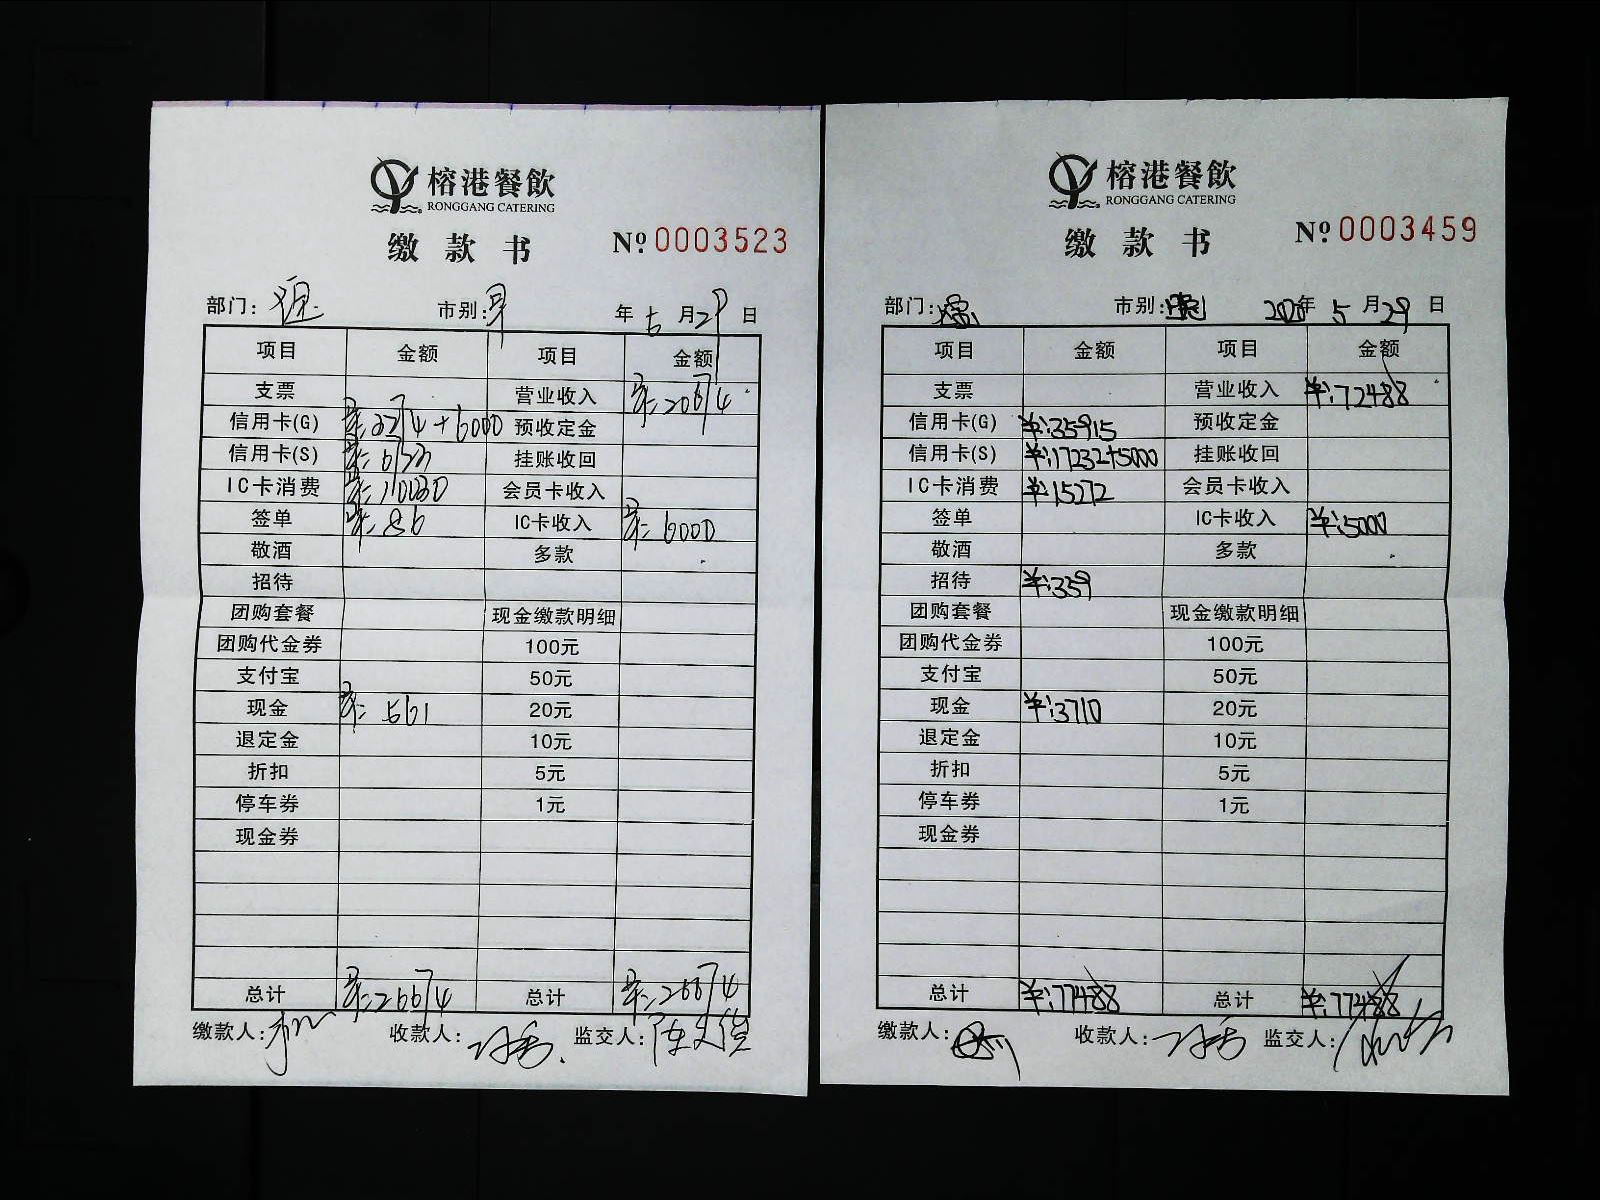 榕港餐飲
RONGGANG CATERING
缴款书 № 0003523
部门: 市别: 早 年 5 月 29 日
项目 金额 项目 金额
支票 营业收入
信用卡(G) 预收定金
信用卡(S) 挂账收回
IC卡消费 会员卡收入
签单 ¥:86 IC卡收入 ¥:6000
敬酒 多款
招待
团购套餐 现金缴款明细
团购代金券 100元
支付宝 50元
现金 ¥:561 20元
退定金 10元
折扣 5元
停车券 1元
现金券
总计 ¥:26674 总计 ¥:26674
缴款人: 收款人: 监交人:
榕港餐飲
RONGGANG CATERING
缴款书 № 0003459
部门: 市别: 2020年 5 月 29 日
项目 金额 项目 金额
支票 营业收入 ¥:72488
信用卡(G) ¥:35915 预收定金
信用卡(S) ¥:17232+5000 挂账收回
IC卡消费 ¥:15272 会员卡收入
签单 IC卡收入 ¥:5000
敬酒 多款
招待 ¥:359
团购套餐 现金缴款明细
团购代金券 100元
支付宝 50元
现金 ¥:3710 20元
退定金 10元
折扣 5元
停车券 1元
现金券
总计 ¥:77488 总计 ¥:77488
缴款人: 收款人: 监交人: